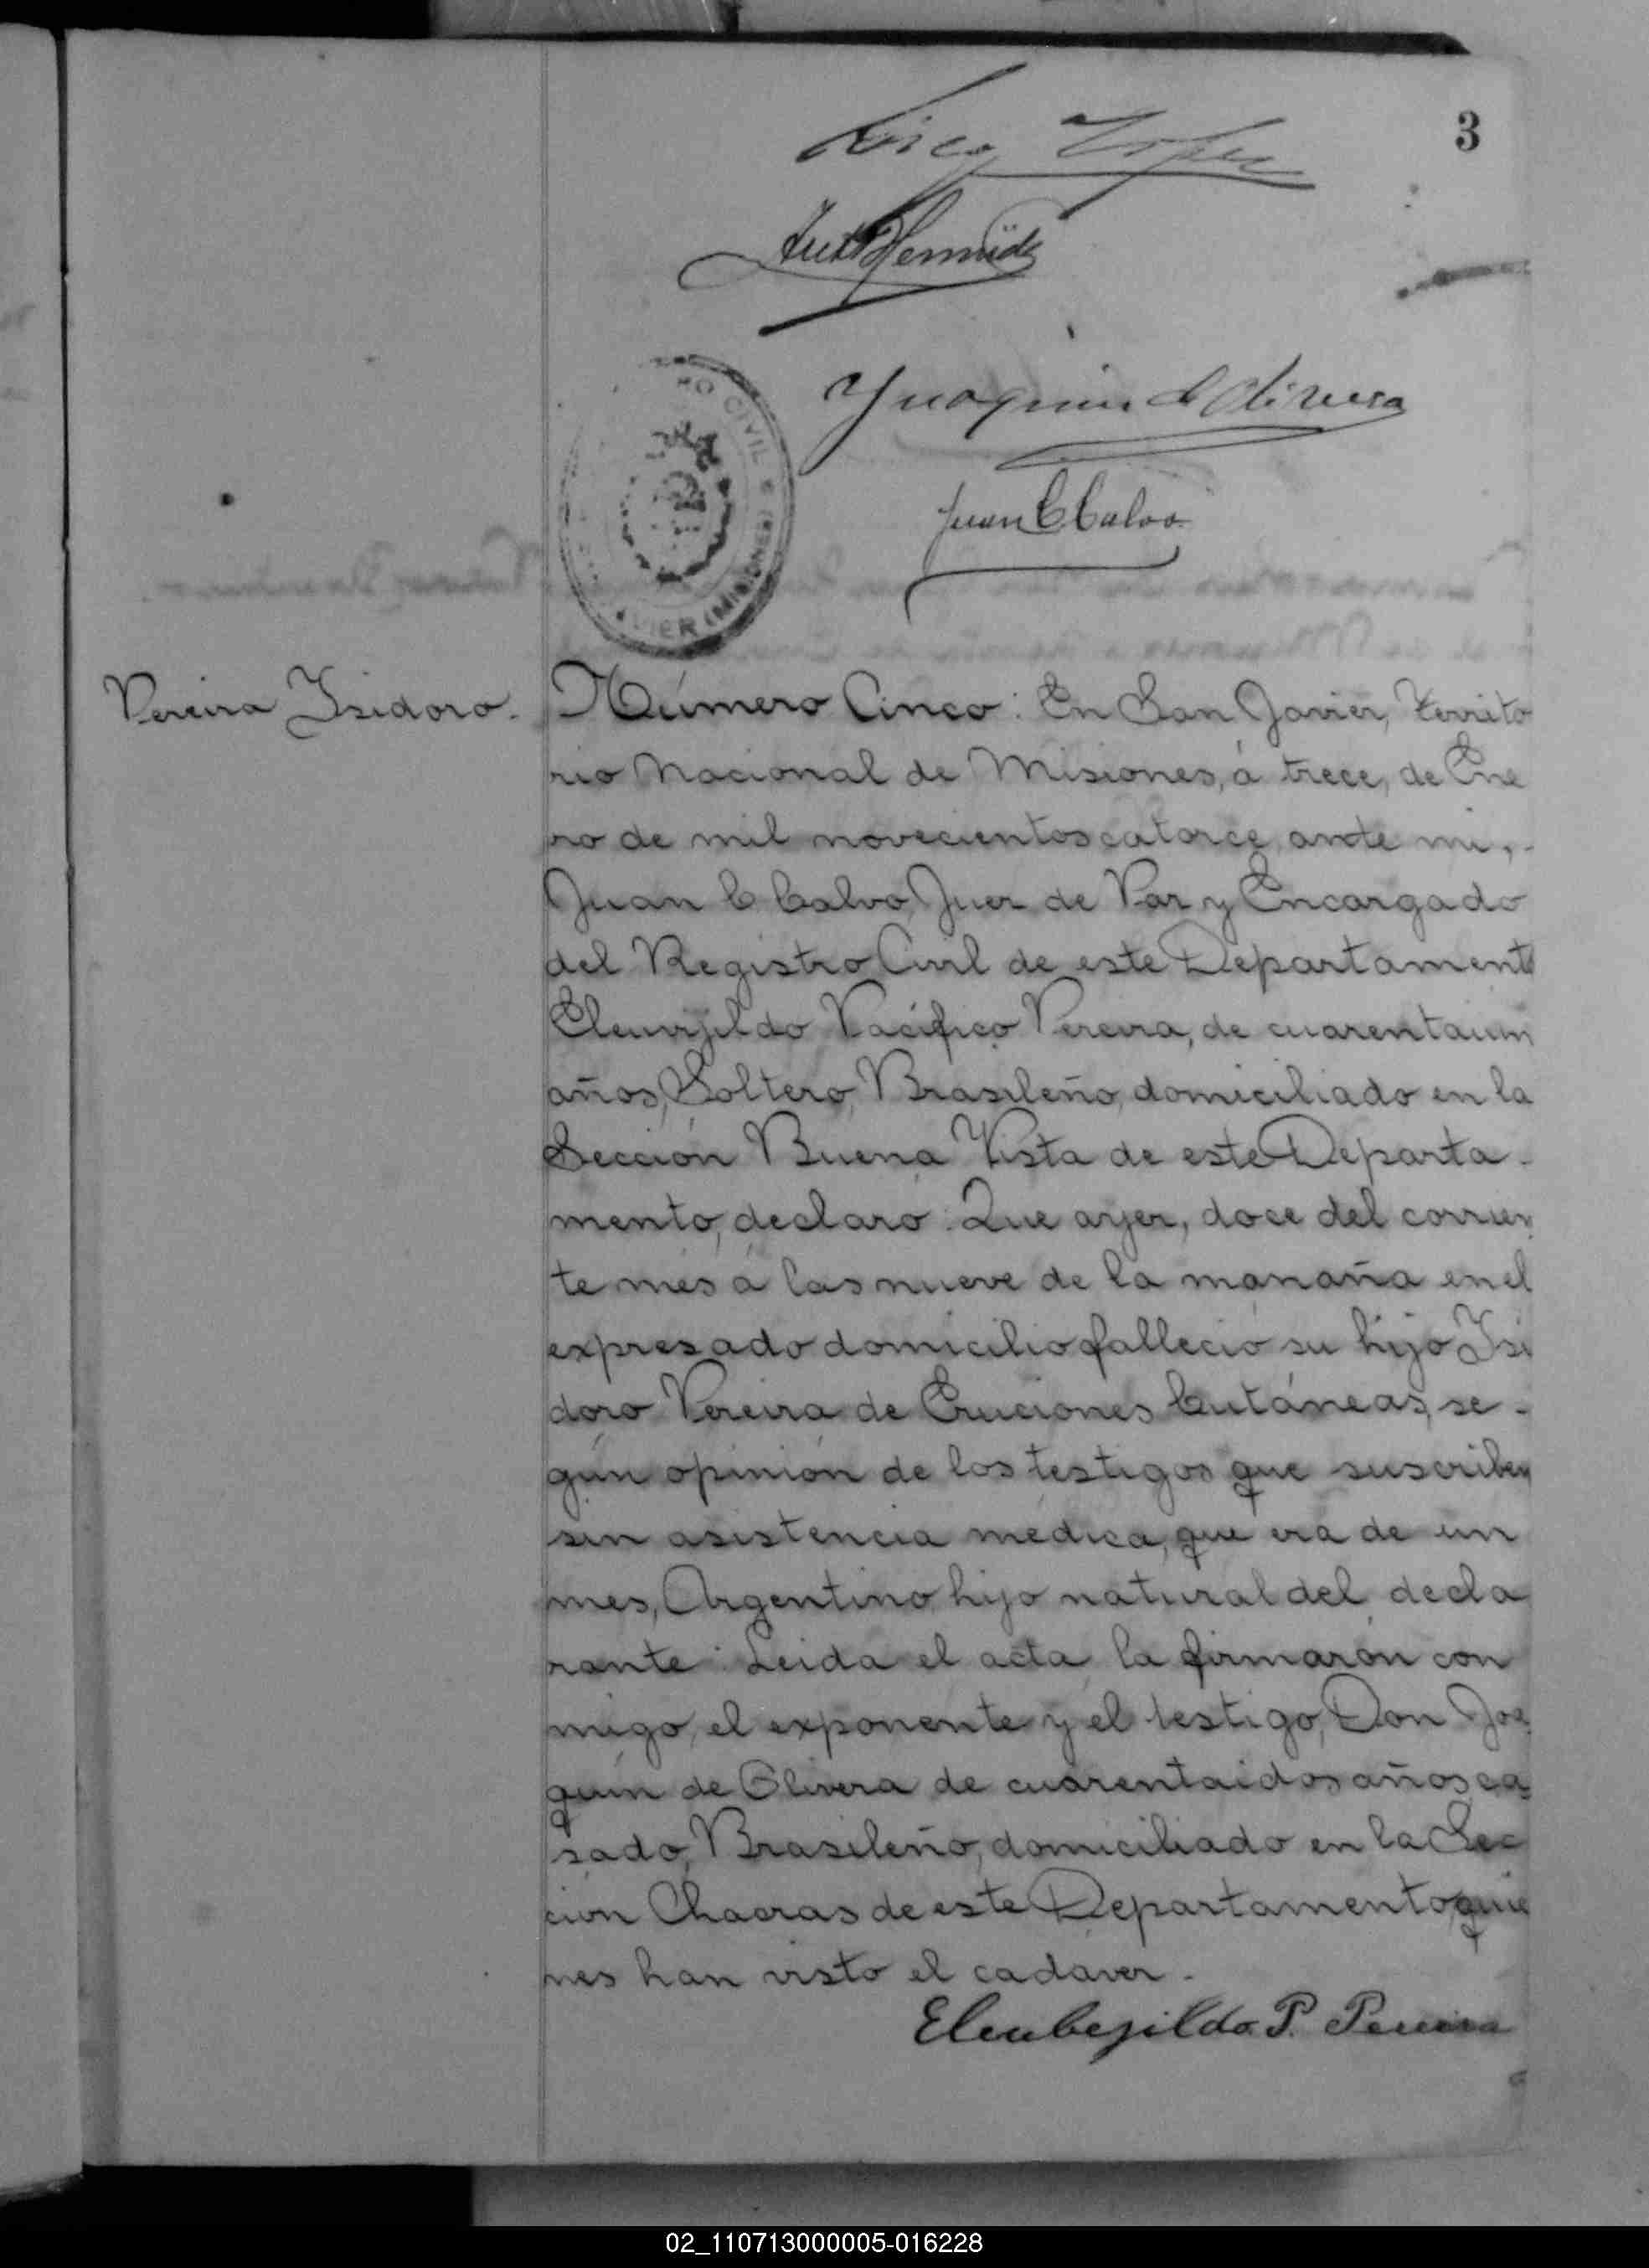 3
Joaquin d Olivera
Juan C Calvo
RO CIVIL
VIER (MISIONES)
Pereira Isidoro.
Número Cinco: En San Javier, Territo
rio Nacional de Misiones, á trece, de Ene
ro de mil novecientos catorce, ante mi,
Juan C Calvo, Juez de Paz y Encargado
del Registro Civil de este Departamento
Pacífico Pereira, de cuarentaiun
años, Soltero, Brasileño, domiciliado en la
Sección Buena Vista de este Departa-
mento, declaró: Que ayer, doce del corrien
te mes á las nueve de la manaña en el
expresado domicilio falleció su hijo Isi
doro Pereira de Eruciones Cutáneas, se-
gún opinión de los testigos que suscriben
sin asistencia médica, que era de un
mes, Argentino, hijo natural del decla
rante: Leida el acta la firmarón con
migo, el exponente y el testigo, Don Joa
quín de Olivera de cuarentaidos años, ca
sado, Brasileño, domiciliado en la Sec
ción Chacras de este Departamento, quie
nes han visto el cadaver.
P. Pereira
02_110713000005-016228